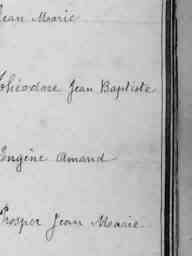 Jean Marie
Théodore Jean Baptiste
Eugène Amand
Prosper Jean Marie